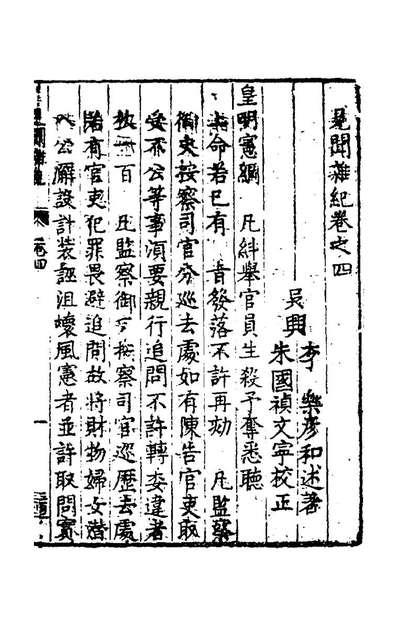 見聞雜紀卷之四
吳興
李樂彥和述著
朱國禎文寧校正
皇明憲綱 凡糾舉官員生殺予奪悉聽
上命若已有 旨發落不許再劾 凡監察
御史按察司官分巡去處如有陳告官吏取
受不公等事須要親行追問不許轉委違者
杖一百 凡監察御史按察司官巡歷去處
若有官吏犯罪畏避追問故將財物婦女潛
入公廨設計裝誣沮壞風憲者並許取問實
卷四
一